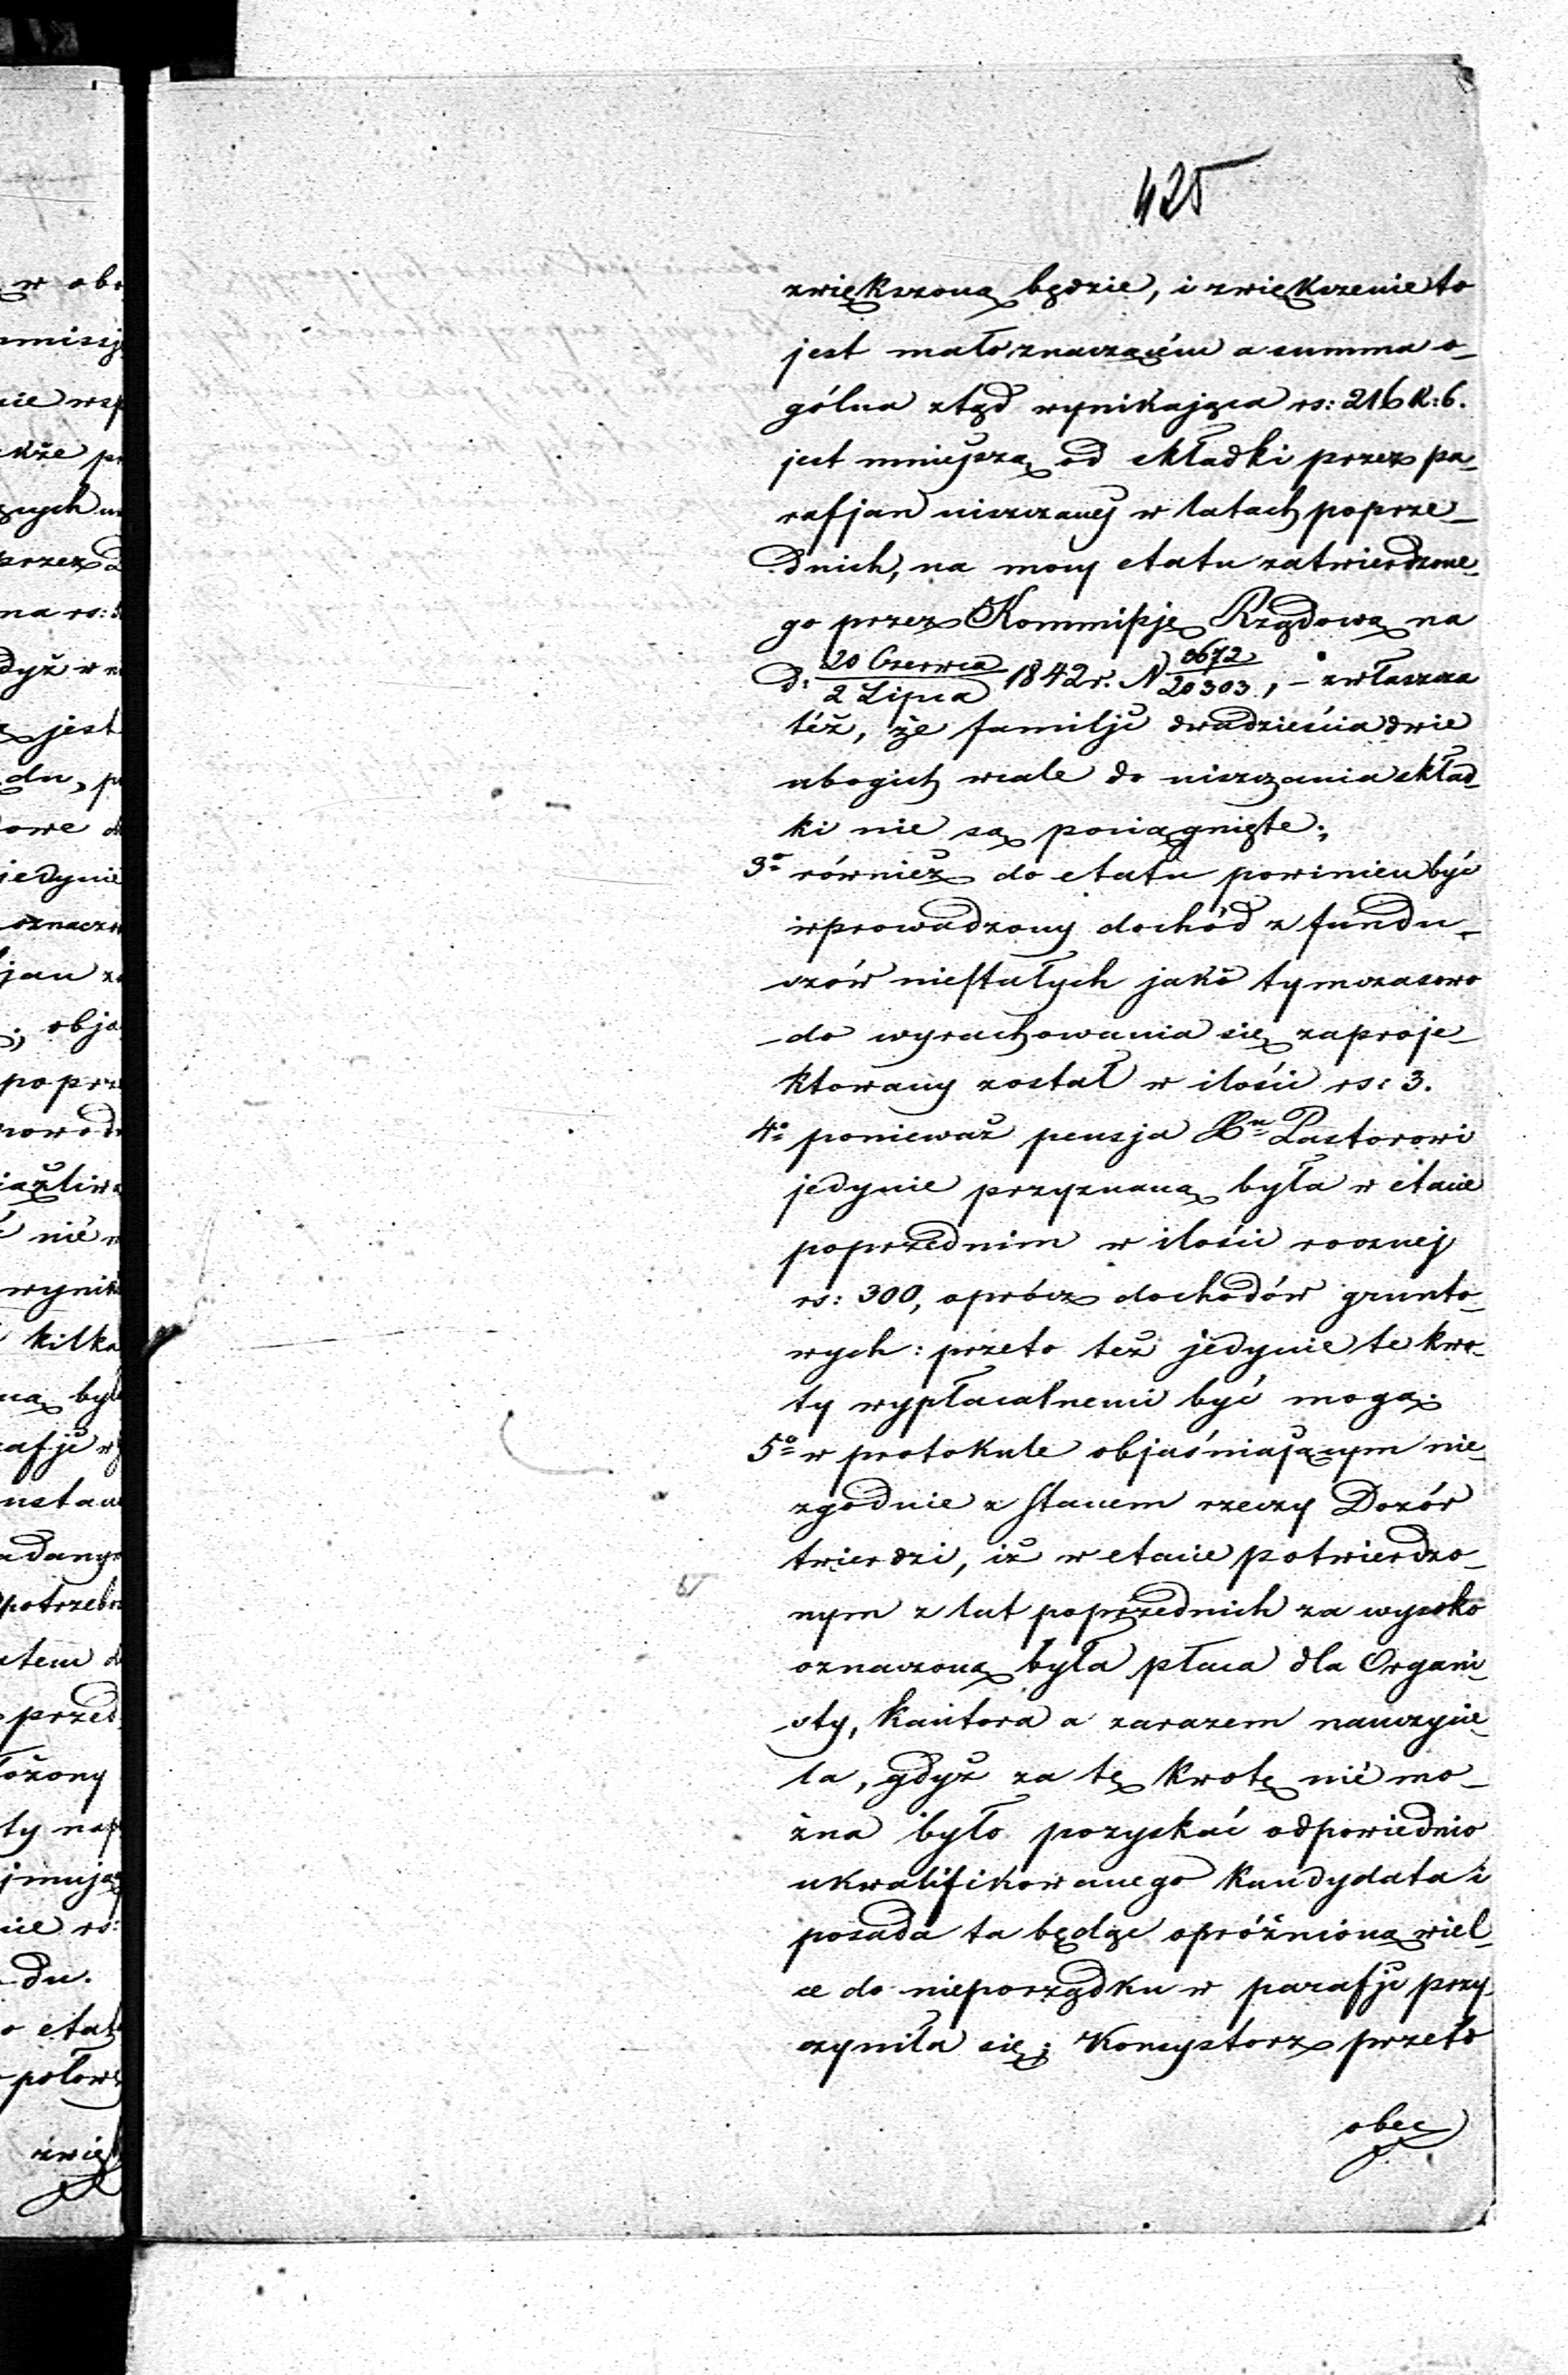 425
zwiększoną będzie, i zwiększenie to
jest mało znaczącém a summa o-
gólna ztąd wynikająca rs: 216 k: 6.
jest mniejszą od składki przez pa-
rafjan uiszczanej w latach poprze-
dnich, na mocy etatu zatwierdzone-
go przez Kommissję Rządową na
d: 20 Czerwca / 2 Lipca 1842 r. N 8672 / 20303, – zwłaszcza
też, że familji dwadzieścia dwie
ubogich wcale do uiszczania skład-
ki nie są pociągnięte;
3o również do etatu powinien być
wprowadzony dochód z fundu-
szów niestałych jako tymczasowo
do wyrachowania się zaproje-
ktowany został w ilości rs: 3.
4o ponieważ pensja Xu Pastorowi
jedynie przyznaną była w etacie
poprzednim w ilości rocznej
rs: 300, oprócz dochodów grunto-
wych: przeto też jedynie te kwo-
ty wypłacalnemi być mogą.
5o w protokule objaśniającym nie-
zgodnie z stanem rzeczy Dozór
twierdzi, iż w etacie potwierdzo-
nym z lat poprzednich za wysoko
oznaczoną była płaca dla Organi-
sty, Kantora a zarazem nauczycie-
la, gdyż za tę kwotę nié mo-
żna było pozyskać odpowiednio
ukwalifikowanego kandydata i
posada ta będąc opróżnioną wiel-
ce do nieporządku w parafji przy-
czyniła się; Konsystorz przeto
obec